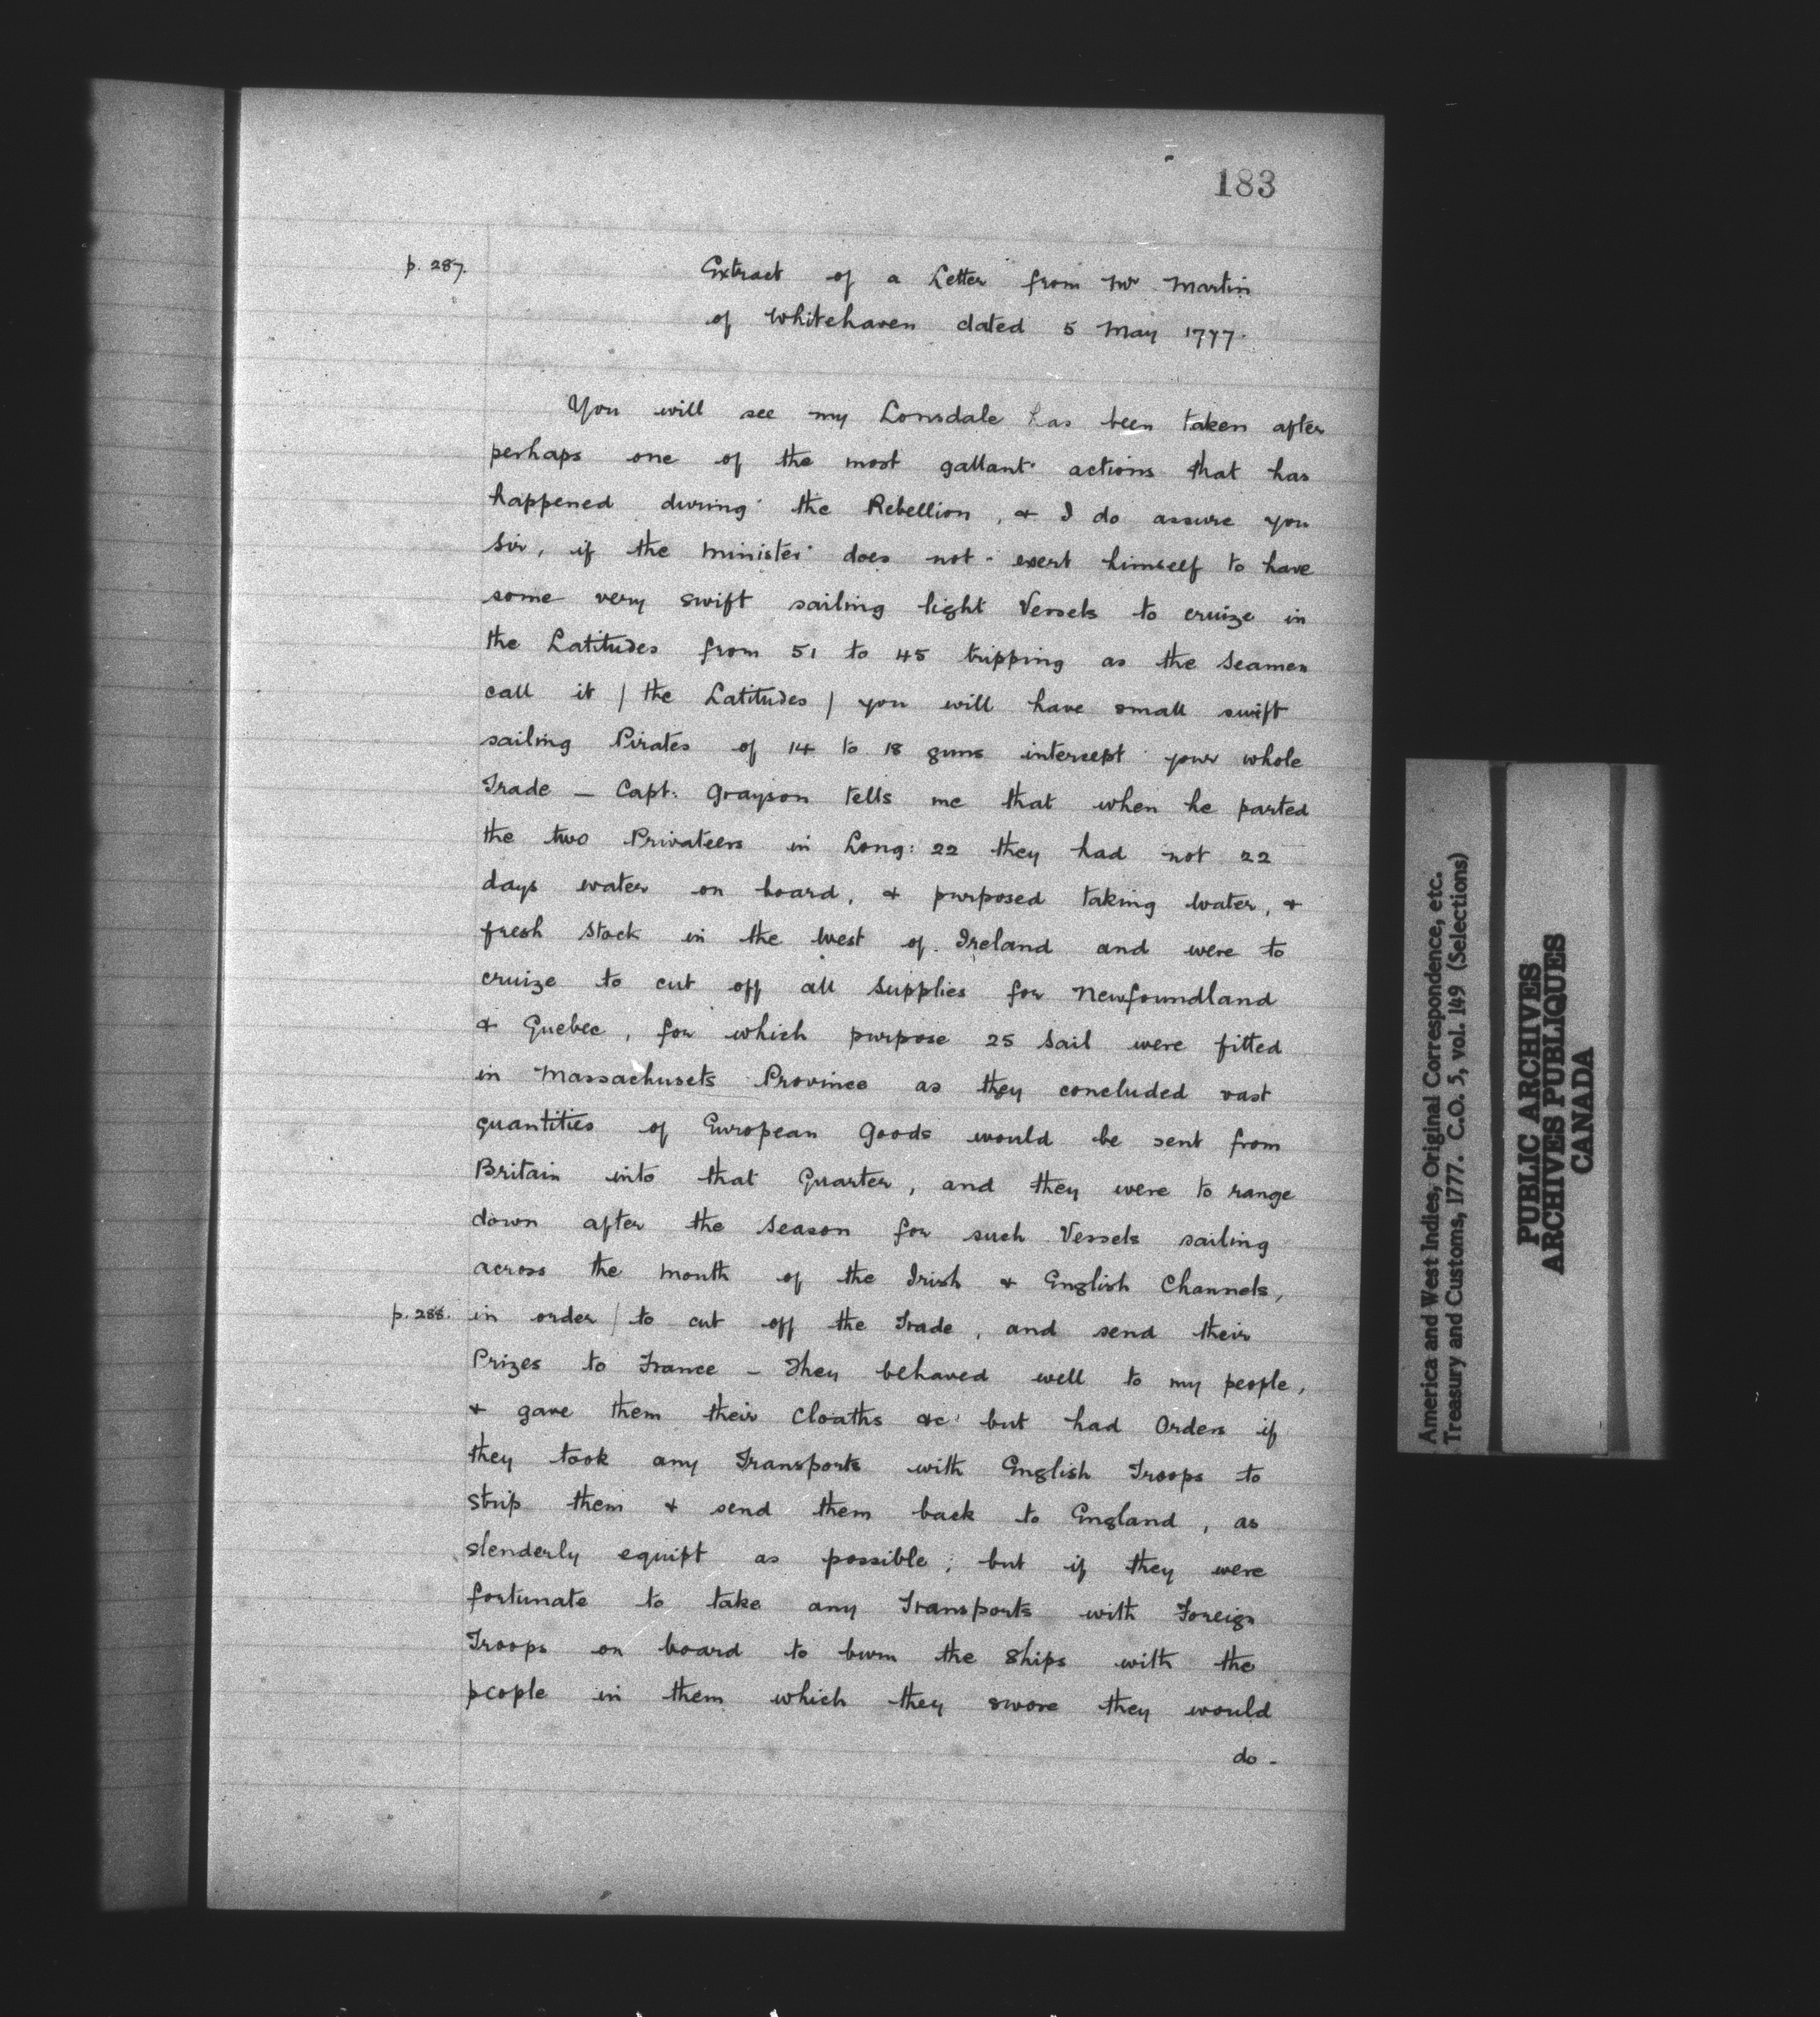 183
p. 287.
Extract of a Letter from Mr Martin
of Whitehaven dated 5 May 1777.
You will see my Lonsdale has been taken after
perhaps one of the most gallant actions that has
happened during the Rebellion, & I do assure you
Sir, if the Minister does not exert himself to have
some very swift sailing light Vessels to cruize in
the Latitudes from 51 to 45 tripping as the Seamen
call it / the Latitudes / you will have small swift
sailing Pirates of 14 to 18 guns intercept your whole
Trade — Capt. Grayson tells me that when he parted
the two Privateers in Long: 22 they had not 22
days water on board, & purposed taking Water, &
fresh Stock in the West of Ireland and were to
cruize to cut off all Supplies for Newfoundland
& Quebec, for which purpose 25 Sail were fitted
in Massachusets Province as they concluded vast
quantities of European Goods would be sent from
Britain into that Quarter, and they were to range
down after the Season for such Vessels sailing
across the Mouth of the Irish & English Channels,
p. 288. in order / to cut off the Trade, and send their
Prizes to France — They behaved well to my people,
& gave them their Cloaths &c but had Orders if
they took any Transports with English Troops to
strip them & send them back to England, as
slenderly equipt as possible; but if they were
fortunate to take any Transports with Foreign
Troops on board to burn the Ships with the
people in them which they swore they would
do -
America and West Indies, Original Correspondence, etc.
Treasury and Customs, 1777. C.O. 5, vol. 149 (Selections)
PUBLIC ARCHIVES
ARCHIVES PUBLIQUES
CANADA